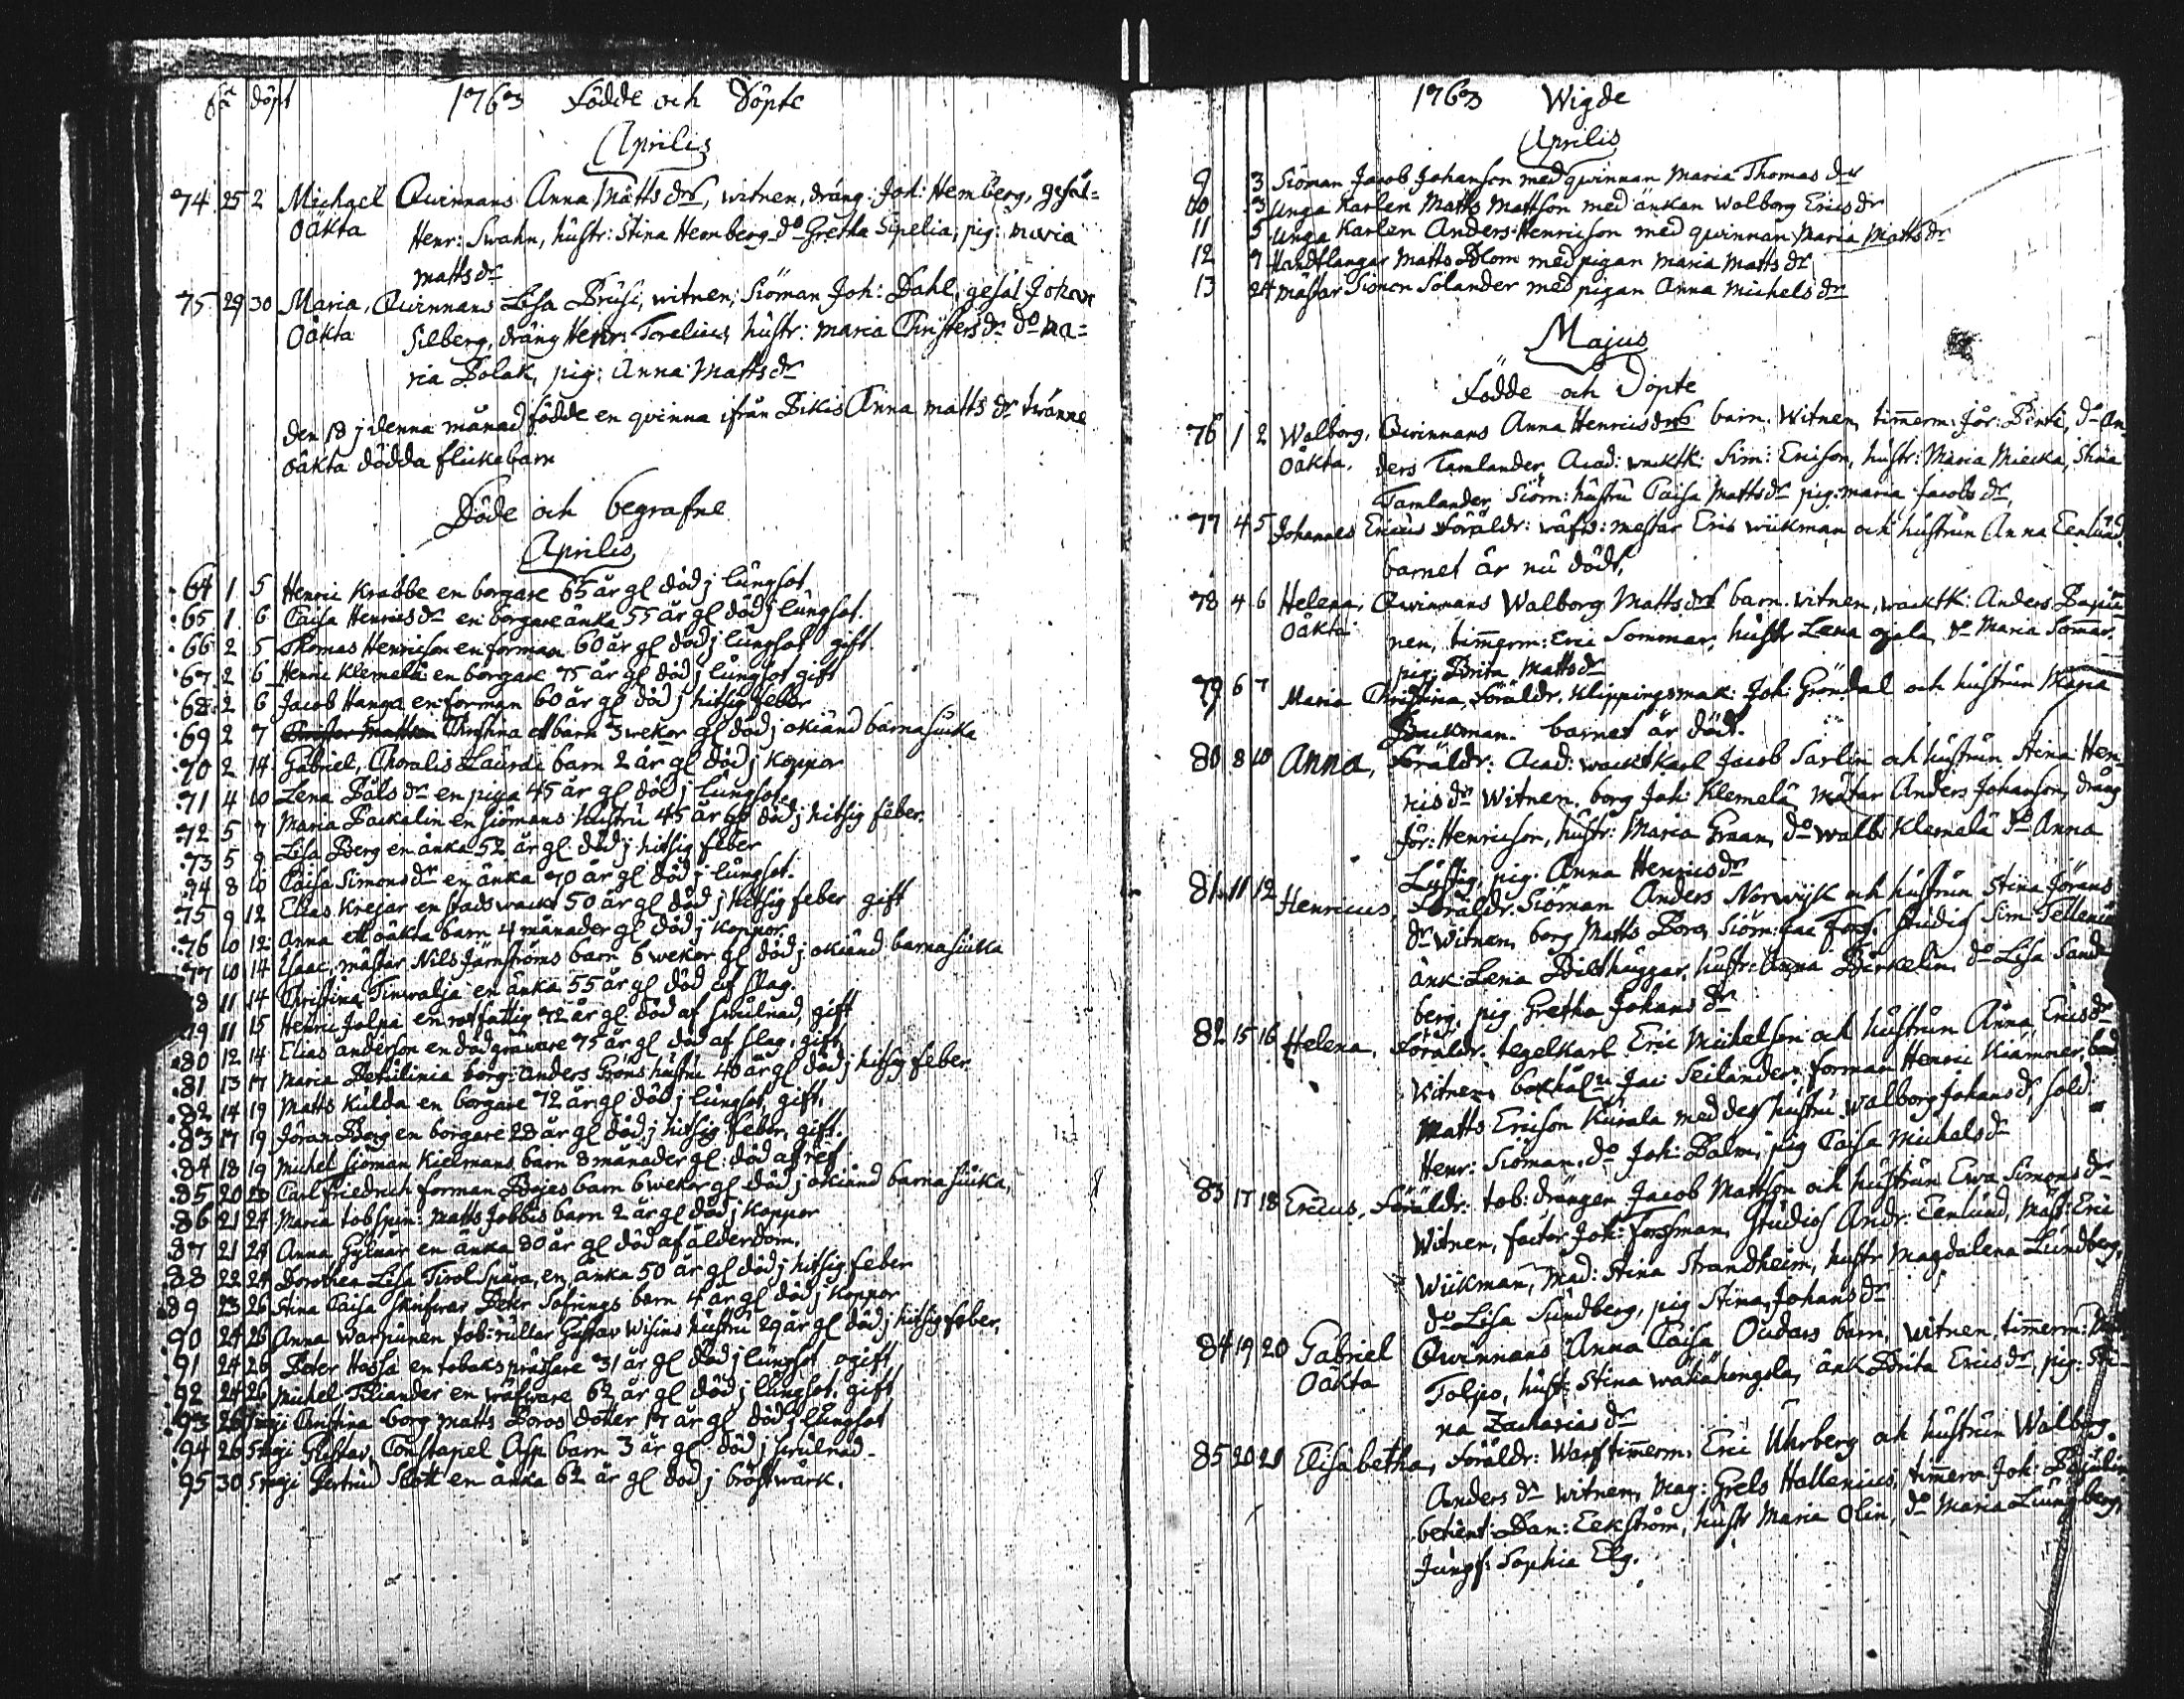 döpt 1763 Födde och Döpte
Aprilis
74 25 2 Michael Qwinnans Anna Matts drs, witnen, dräng: Joh: Hemberg, gesäl-
Oäkta Henr: Swahn, hustr: Stina Hemberg do Gretha Sipelia, pig: Maria
Matts dr
75 29 30 Maria, Qwinnans Lisa Brusi, witnen, Siöman Joh: Dahl, gesäl Johan
Oäkta Silberg, dräng Henr: Torelius, hustr: Maria Christers dr do Ma-
ria Polak, pig: Anna Matts dr
den 18 j denna månad födde en qvinna ifrån Pikis Anna Matts dr twänne
oäkta dödda flickebarn
Döde och begrafne
Aprilis
64 1 5 Henric Krabbe en borgare 65 år gl död j lungsot
65 1 6 Caisa Henrics dr en borgare änka 55 år gl död j lungsot.
66 2 5 Thomas Henricson en forman 60 år gl död j lungsot gift
67 2 6 Henric Klemelä en borgare 75 år gl död j lungsot gift
68 2 6 Jacob Hanga en forman 60 år gl död j hitsig feber
69 2 7 Christina ett barn 3 wekor gl död j okiänd barnasiuka
70 2 14 Gabriel, Choralis Laurdi barn 2 år gl död j Koppor
71 4 10 Lena Påls dr en piga 45 år gl död j lungsot
72 5 7 Maria Packalin en siömans hustru 45 år gl död j hitsig feber.
73 5 9 Lisa Berg en änka 52 år gl död j hitsig feber
94 8 10 Caisa Simons dr en änka 70 år gl död j lungsot.
75 9 12 Elias Krejar en stads wackt 50 år gl död j hitsig feber gift
76 10 12 Anna ett oäkta barn 4 månader gl död j Koppor
77 10 14 Isaac, mästar Nils Järnströms barn 6 wekor gl död j okiänd barnasiuka
78 11 14 Christina Timwalja en änka 55 år gl död af slag.
79 11 15 Henric Jolpa en rotfattig 72 år gl död af swulnad, gift
80 12 14 Elias anderson en dödgräware 75 år gl död af slag, gift
81 13 17 Maria Petulinia borg: anders Gröns hustru 40 år gl död j hitsig feber
82 14 19 Matts Kulda en borgare 72 år gl död j lungsot, gift.
83 17 19 Jöran Berg en borgare 28 år gl död j hitsig feber, gift.
84 18 19 Michel siöman Kielmans barn 8 månader gl. död af ref
85 20 20 Carl Friedrich forman Bojes barn 6 wekor gl död j okiänd barnasiuka,
86 21 24 Maria tobspin: Matts Jobbis barn 2 år gl död j Koppor
87 21 24 Anna Gylnär en änka 80 år gl död af ålderdom.
88 22 24 Dorothea Lisa Tirol Spära, en änka 50 år gl död j hitsig feber
89 23 26 Stina Caisa Peter Sofrings barn 4 år gl död j Koppor
90 24 26 Anna Warpunen tob: rullar Gustav Wisius hustru 29 år gl död j hitsig feber,
91 24 26 Peter Hassa en tobaksprässare 31 år gl död j lungsot ogift
92 24 26 Michel Thiander en wäfware 62 år gl död j lungsot, gift
93 26 5 maji Christina borg Matts Boros dotter 17 år gl död j lungsot
94 26 5 maji Gustav, Constapel Asp barn 3 år gl död j swulnad
95 30 5 maji Gertrud Slott en änka 62 år gl död j bröstwärk.
1763 Wigde
Aprilis
9 3 Siöman Jacob Johanson med qwinnan Maria Thomas dr
10 3 Unga Karlen Matts Mattson med änkan Walborg Erics dr
11 5 Unga Karlen Anders Henricson med qwinnan Maria Matts dr
12 7 Handtlangar Matts Blom med pigan Maria Matts dr
13 24 Mästar Simon Solander med pigan Anna Michels dr
Majus
Födde och Döpte
76 1 2 Walborg, Qwinnans Anna Henrics drs barn. Witnen, timerm: Jör: Penti, do An
Oäkta. ders Tamlander Acad: wacktk: Sim: Ericson, hustr: Maria Miecka, Stina
Tamlander, Siöm: hustru Caisa Matts dr pig: Maria Jacobs dr,
77 4 5 Johannes Ericus Föräldr: wäfw: mestar Eric Wiikman och hustrun Anna Eenlund
barnet är nu dödt,
78 4 6 Helena, Qwinnans Walborg Matts drs barn. witnen, wacktk: Anders
Oäkta nen, timerm: Eric Sommar, hustr Lena ojala, do Maria Sommar,
pig: Brita Matts dr
79 6 7 Maria Christina, Föräldr. Klippingsmak: Joh: Gröndal och hustrun Maria
Backman. barnet är dödt.
80 8 10 Anna, Föräldr: Acad: wacktkarl Jacob Sarlin och hustrun Stina Hen-
rics dr Witnen. borg Joh: Klemelä, mätar Anders Johanson, dräng
Jör: Henricson, hustr: Maria Graan, do Walb: Klemelä do Anna
Lustig, pig: Anna Henrics dr
81 11 12 Henricus, Föräldr. Siöman Anders Norwijk och hustrun Stina Jörans
dr witnen, borg Matts Boro, Siöm: Isac Fors. Studios Sim Tellenius
änk: Lena Bilthuggar, hustr: Anna Birkelin, do Lisa Sand
berg, pig Gretha Johans dr
82 15 16 Helena, Föräldr. tegelkarl Eric Michelson och hustrun Anna Erics dr
Witnen, Jac: Seilander, forman Henric Kiämner, bond
Matts Ericson Kurala med dess hustru Walborg Johans dr, sold
Henr: Siöman, do Joh: Palm, pig Caisa Michals dr
83 17 18 Ericus, Föräldr: tob: drängen Jacob Mattson och hustrun Ewa Simons dr
Witnen, factor Joh: Forssman, Studios Andr: Eenlund, Mäst: Eric
Wiikman, Mad: Stina Strandheim, hustr Magdalena Lundberg,
do Lisa Sundberg, pig Stina Johans dr
84 19 20 Gabriel Qwinnans Anna Caisa Oudars barn, witnen, timerm:
Oäkta Tolpo, hustr: Stina wähähongola, änk Brita Erics dr, pig: Sti-
na Zacharias dr
85 20 21 Elisabetha, Föräldr: Warfstimerm. Eric Uhrberg och hustrun Walborg.
Anders dr witnen, Mag: Grels Hallenius, timerm Joh:
betient: Dan: Eekström, hustr Maria Olin, do Maria Liungberg,
Jungf: Sophia Elg.